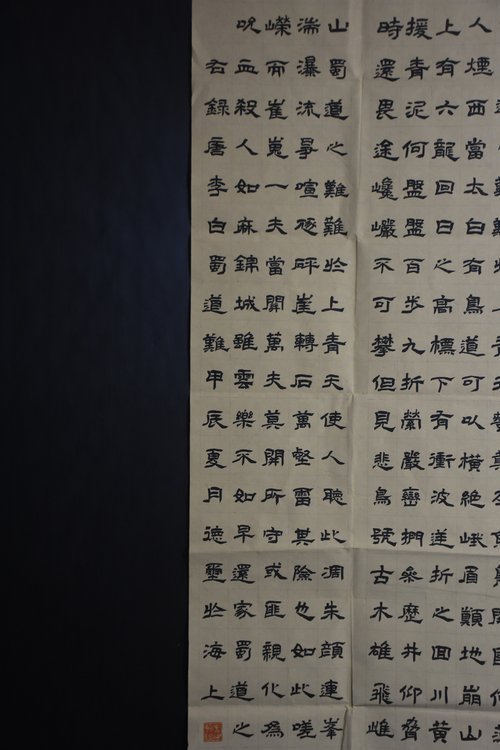 人煙西當太白有鳥道可以橫絕峨眉顛地崩山
上有六龍回日之高標下有衝波逆折之回川黃
援青泥何盤盤百步九折縈巖巒捫參歷井仰脅
時還畏途巉巖不可攀但見悲鳥號古木雄飛雌
山蜀道之難難於上青天使人聽此凋朱顏連峯
湍瀑流爭喧豗砯崖轉石萬壑雷其險也如此嗟
嶸而崔嵬一夫當關萬夫莫開所守或匪親化為
吮血殺人如麻錦城雖雲樂不如早還家蜀道之
右錄唐李白蜀道難甲辰夏月德璽於海上